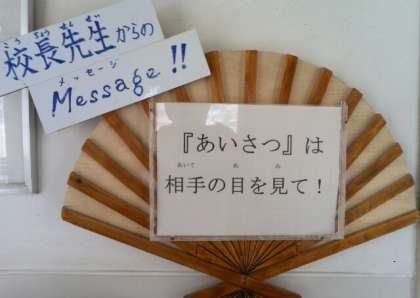 校長先生からの
こうちょうせんせい
Message!!
メッセージ
『あいさつ』は
相手の目を見て!
あいて め み